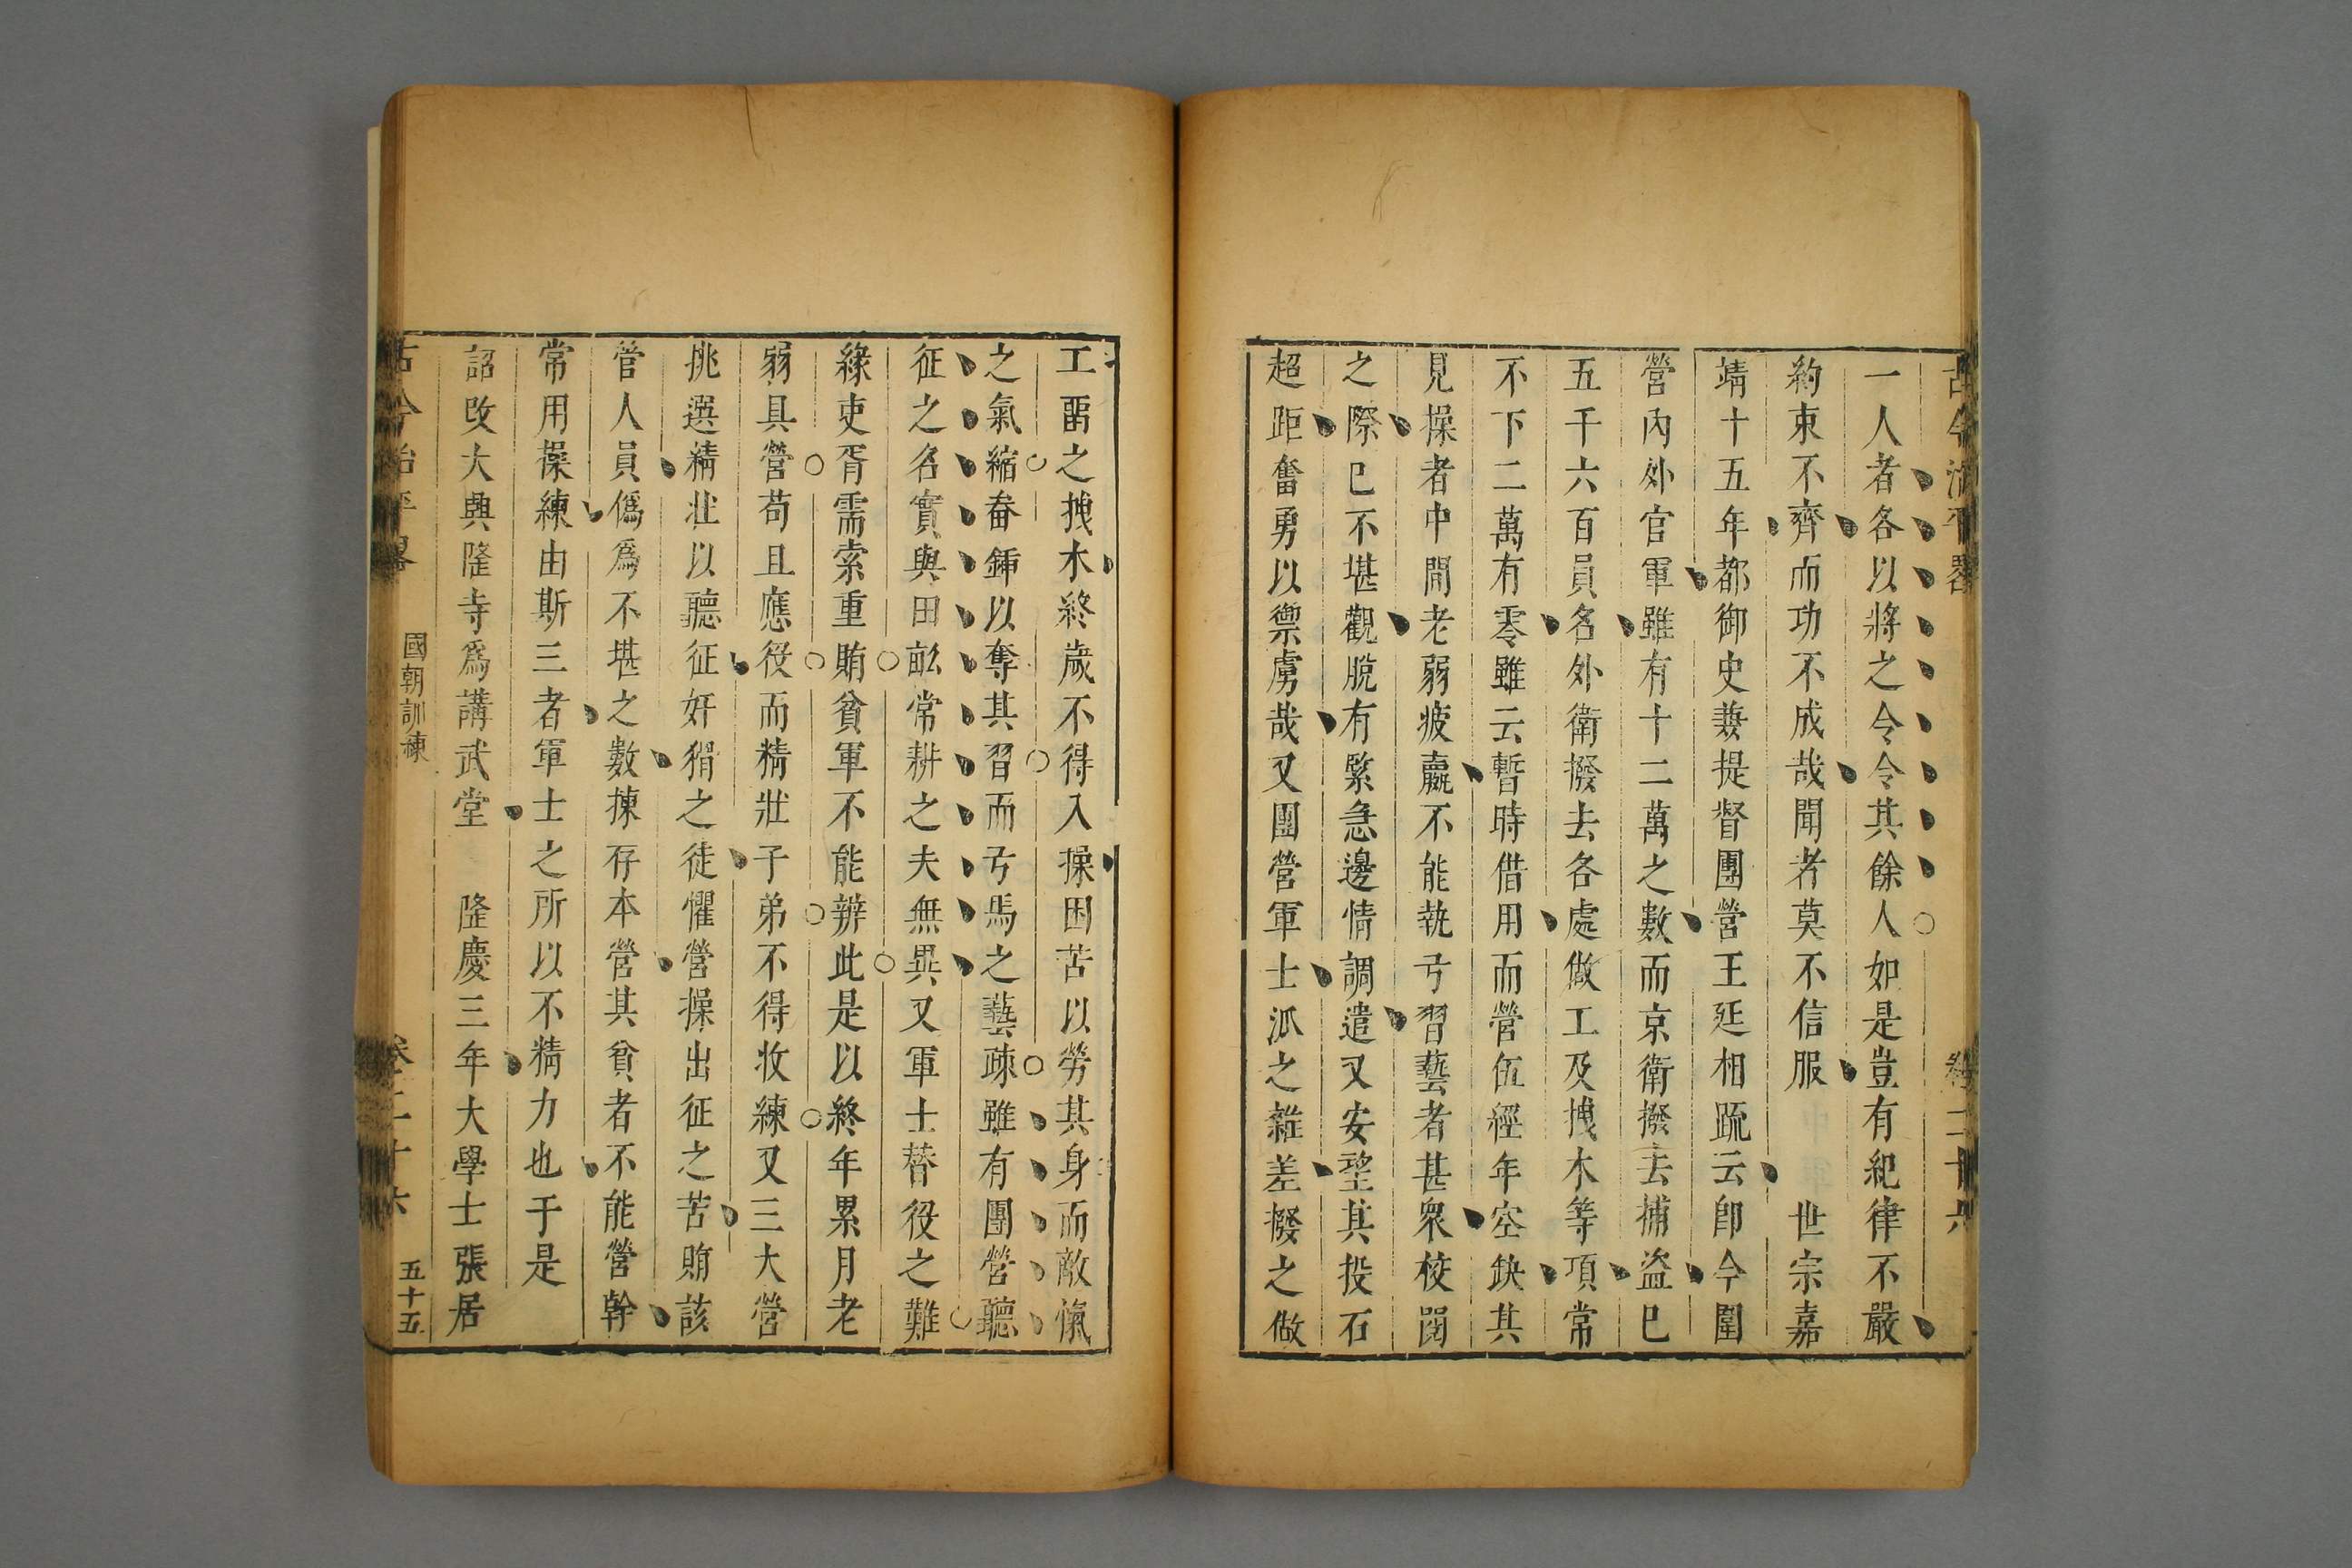 古今治平畧　卷二十六
一人者各以將之令令其餘人如是豈有紀律不嚴
約束不齊而功不成哉聞者莫不信服　世宗嘉
靖十五年都御史兼提督團營王廷相疏云卽今團
營內外官軍雖有十二萬之數而京衛撥去捕盗已
五千六百員名外衛撥去各處做工及拽木等項常
不下二萬有零雖云暫時借用而營伍經年空缺其
見操者中間老弱疲羸不能執弓習藝者甚衆校閱
之際已不堪觀脫有緊急邊情調遣又安望其投石
超距奮勇以禦虜哉又團營軍士派之雜差撥之做
工畱之拽木終歲不得入操困苦以勞其身而敵愾
之氣縮畚鍤以奪其習而弓馬之藝疎雖有團營聽
征之名實與田畝常耕之夫無異又軍士替役之難
緣吏胥需索重賄貧軍不能辦此是以終年累月老
弱具營苟且應役而精壯子弟不得收練又三大營
挑選精壯以聽征奸猾之徒懼營操出征之苦賄該
管人員僞爲不堪之數揀存本營其貧者不能營幹
常用操練由斯三者軍士之所以不精力也于是
詔改大興隆寺爲講武堂　隆慶三年大學士張居
古今治平畧　國朝訓練　卷二十六　五十五